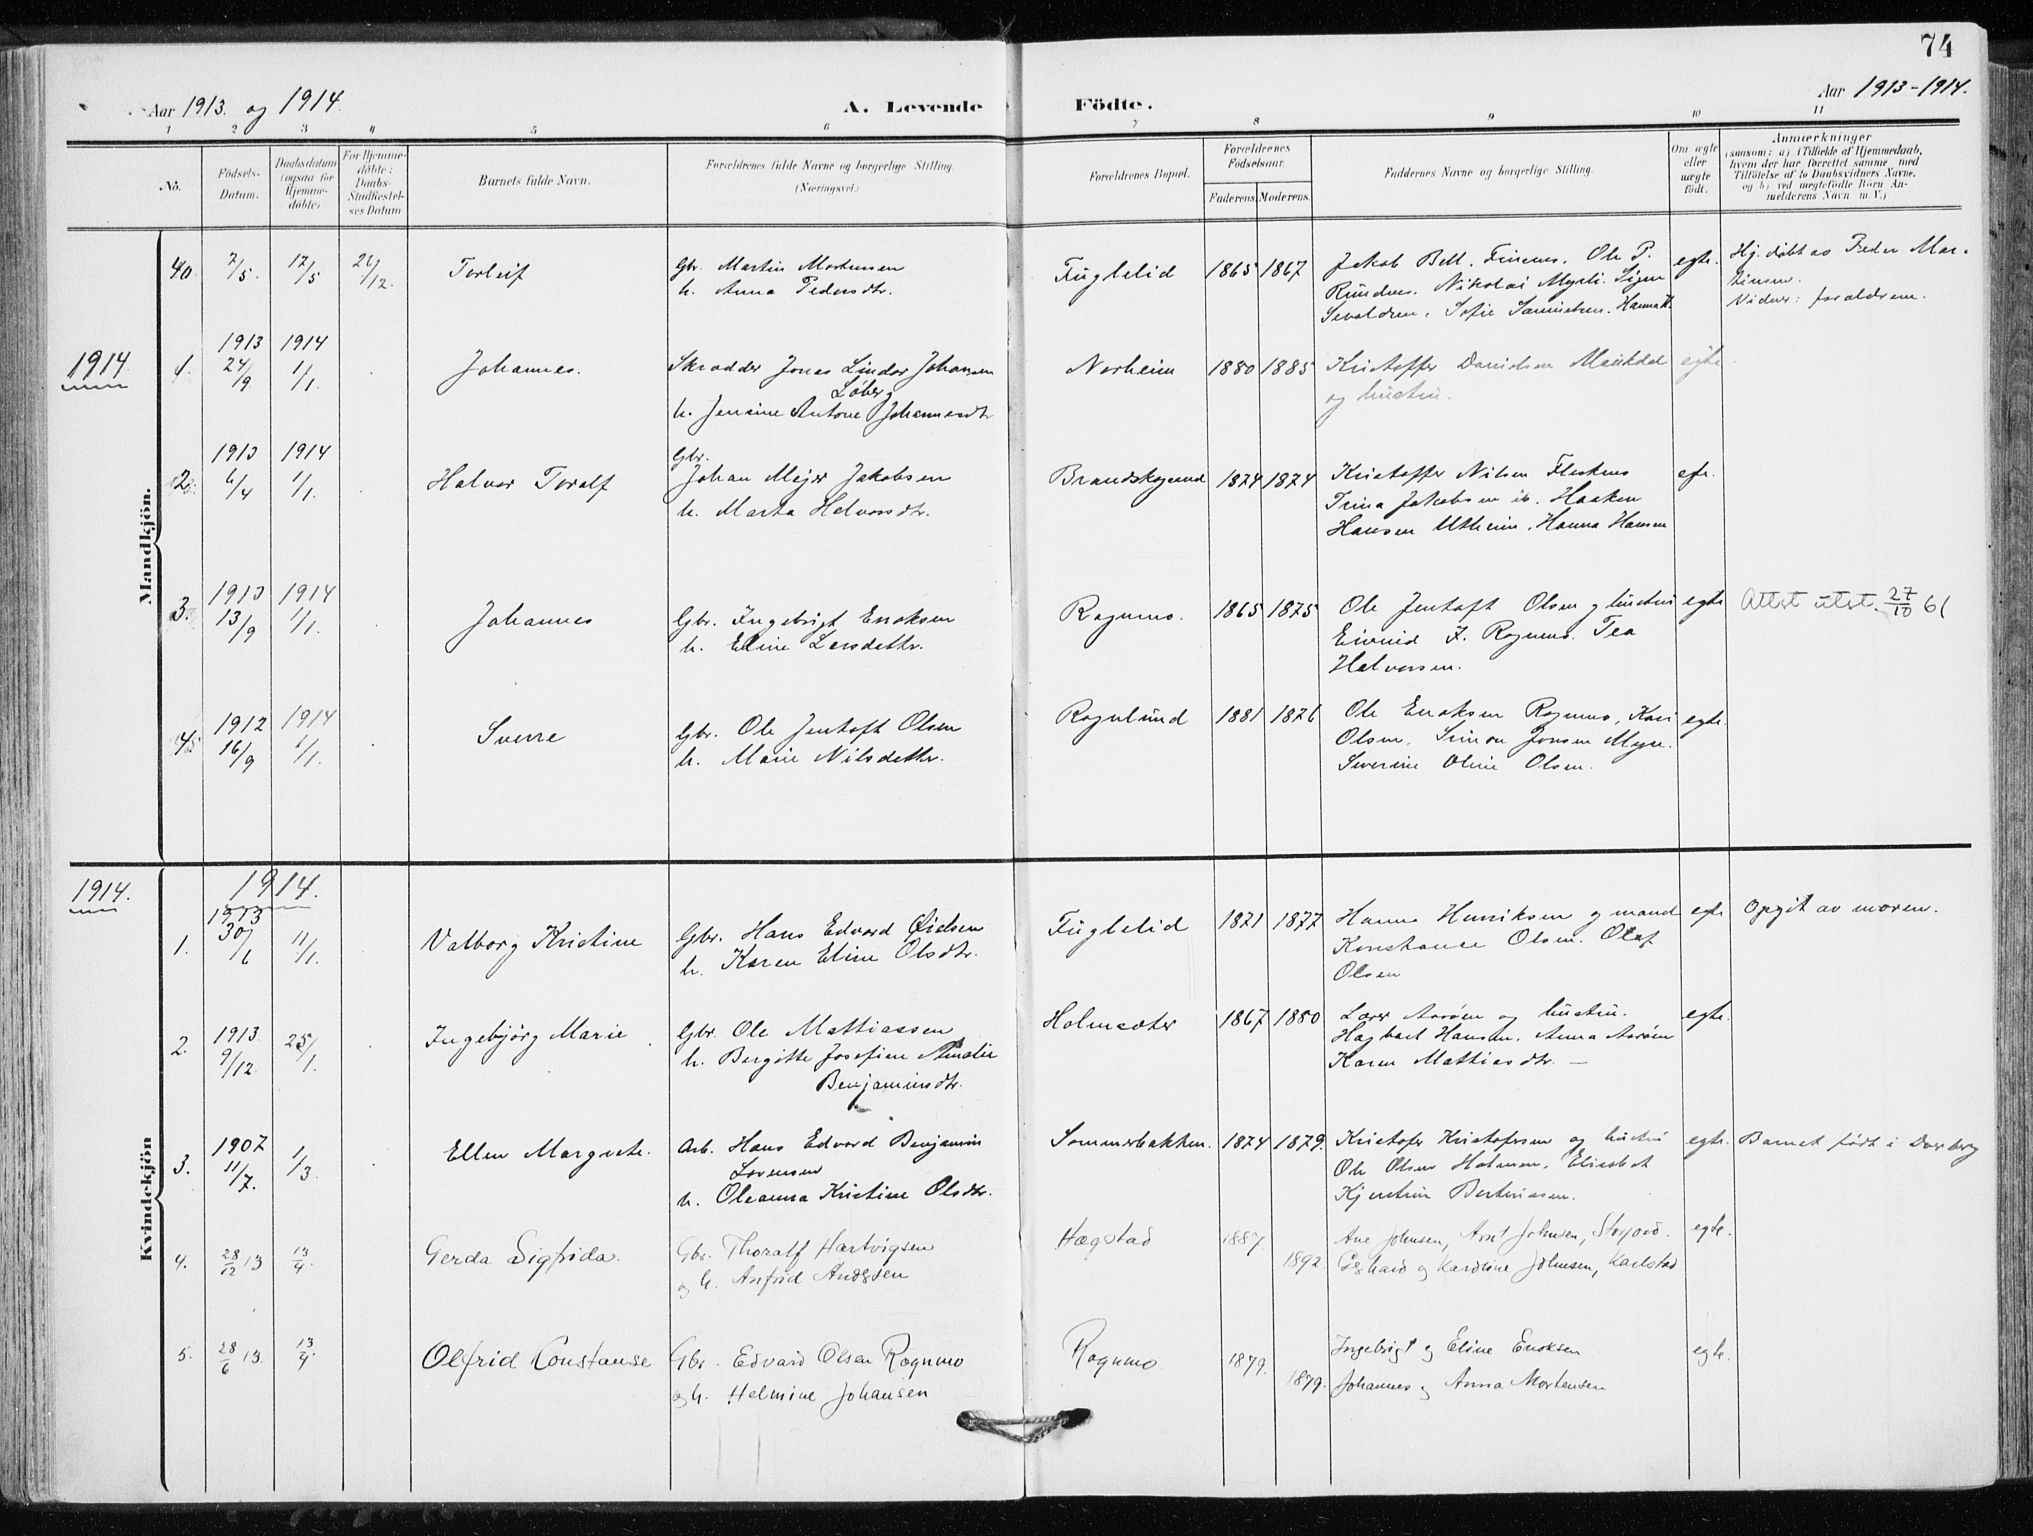 74
Aar 1913 og 1914. A. Levende Födte. Aar 1913-1914.
1 2 3 4 5 6 7 8 9 10 11
No. Födsels-Datum. Daabsdatum (ogsaa for Hjemmedöbte) For Hjemmedöbte: Daabs-Stadfæstelses Datum Barnets fulde Navn. Forældrenes fulde Navne og borgerlige Stilling. (Næringsvei.) Forældrenes Bopæl. Forældrenes Födselsaar. Faderens. Moderens. Faddernes Navne og borgerlige Stilling. Om ægte eller uægte födt. Anmærkninger (saasom: a) i Tilfælde af Hjemmedaab, hvem der har forrettet samme, med Tilföielse af to Daabsvidners Navne, og b) ved uægtefödte Börn Anmelderens Navn m.V.)
Mandkjön.
40. 7/5. 17/5 26/12. Torleif Gbr. Martin Mortensen Fuglelid 1865 1867 Jakob Bell. Finenes. Ole P. egte. Hj. døbt av Peder Mar-
h. Anna Pedersdtr. Rundmo. Nikolai Myrli. Sigen tinsen.
Sevaldsen. Sofie Samuelsen. Hanna H. Vidner: forældrene.
1914. 1. 1913 24/9. 1914 1/1. Johannes. Skrædder Jonas Lindor Johansen Norheim 1880 1885 Kristoffer Danielsen egte
Løberg og hustru.
h. Jensine Antone Johannesdtr
2. 1913 6/4 1914 1/1. Halvor Toralf Gbr.
Johan Mejer Jakobsen Brandskognund 1874 1874 Kristoffer Nilsen Fleskmo egte.
h. Marta Halvorsdtr. Trina Jakobsen ib. Haaken
Hansen Utheim. Hanna Hansen
3. 1913 13/9 1914 1/1. Johannes Gbr. Ingebrigt Enoksen Rognmo. 1865 1875 Ole Jentoft Olsen og hustru egte Attst utst. 27/10 61
h. Eline Larsdatter. Eivind I. Rognmo. Tea
Halvorsen.
4. 1912 16/9 1914 1/1. Sverre Gbr. Ole Jentoft Olsen Rognlund 1881 1876 Ole Enoksen Rognmo, Kari egte.
h. Marie Nilsdatter. Olsen. Simon Jonsen Myre.
Severine Oline Olsen.
Kvindekjön
1914. 1914.
1. 1913 30/6 11/1. Valborg Kristine Gbr. Hans Edvard Eielsen Fuglelid 1871 1877 Hanna Henriksen og mand egte Opgit av moren.
h. Karen Eline Olsdtr. Konstanse Olsen. Olaf
Olsen
2. 1913. 9/12. 25/1. Ingebjörg Marie Gbr. Ole Mattiassen Holmsæter 1867 1880 Lærer Aarøen og hustru. egte.
h. Bergitte Josefine Amalie Hagbart Hansen. Anna Aarøen
Benjaminsdtr. Karen Mattiasdtr. —
3. 1907 11/7. 1/3. Ellen Margrete. Arb. Hans Edvard Benjamin Sommerbakken. 1874 1879. Kristofer Kristofersen og hustru egte. Barnet født i Doerberg
Sørensen Ole Olsen Holmen. Elisabet
h. Oleanna Kristine Olsdtr. Kjerstine Berteussen.
4. 28/12 13 13/4. Gerda Sigfrida. Gbr. Thoralf Hartvigsen Hægstad 1887 Ane Johnsen, Arnt Johnsen, Storjord. egte.
og h. Anfrid Andersen 1892. Gerhard og Karoline Johnsen, Karlstad
5. 28/6 13. 13/4. Olfrid Constanse Gbr. Edvard Olsen Rognmo Rognmo 1879. Ingebrigt og Eline Enoksen egte.
og h. Helmine Johansen 1879. Johannes og Anna Mortensen